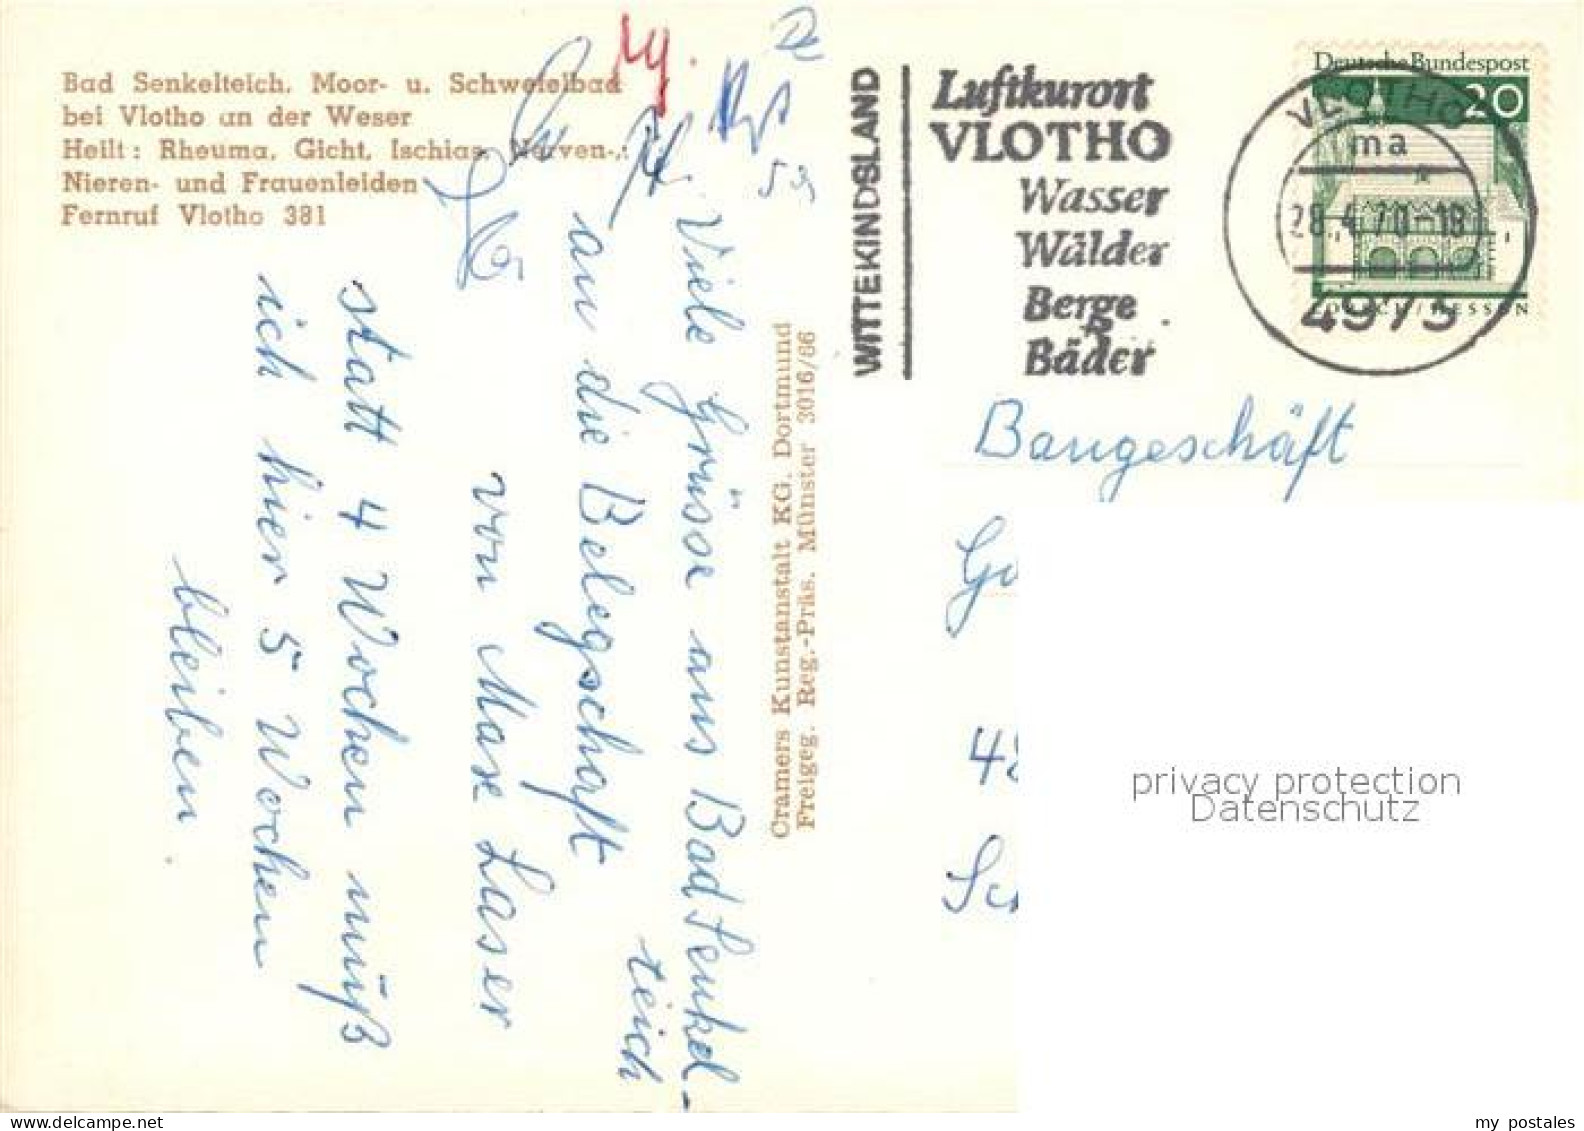 Bad Senkelteich. Moor- u. Schwefelbad
bei Vlotho an der Weser
Heilt: Rheuma, Gicht, Ischias, Nerven-,
Nieren- und Frauenleiden
Fernruf Vlotho 381
Viele Grüsse aus Bad Senkel-
teich
an die Belegschaft
von Max Laser
statt 4 Wochen muß
ich hier 5 Wochen
bleiben.
Cramers Kunstanstalt KG. Dortmund
Freigeg. Reg.-Präs. Münster 3016/66
WITTEKINDSLAND
Luftkurort
VLOTHO
Wasser
Wälder
Berge
Bäder
Deutsche Bundespost
20
VLOTHO
ma
28.4.70-18
4973
Baugeschäft
privacy protection
Datenschutz
my postales